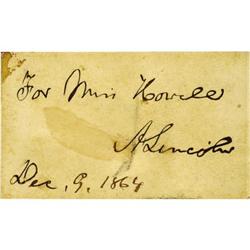 For Miss Howell
A Lincoln
Dec. 9. 1864